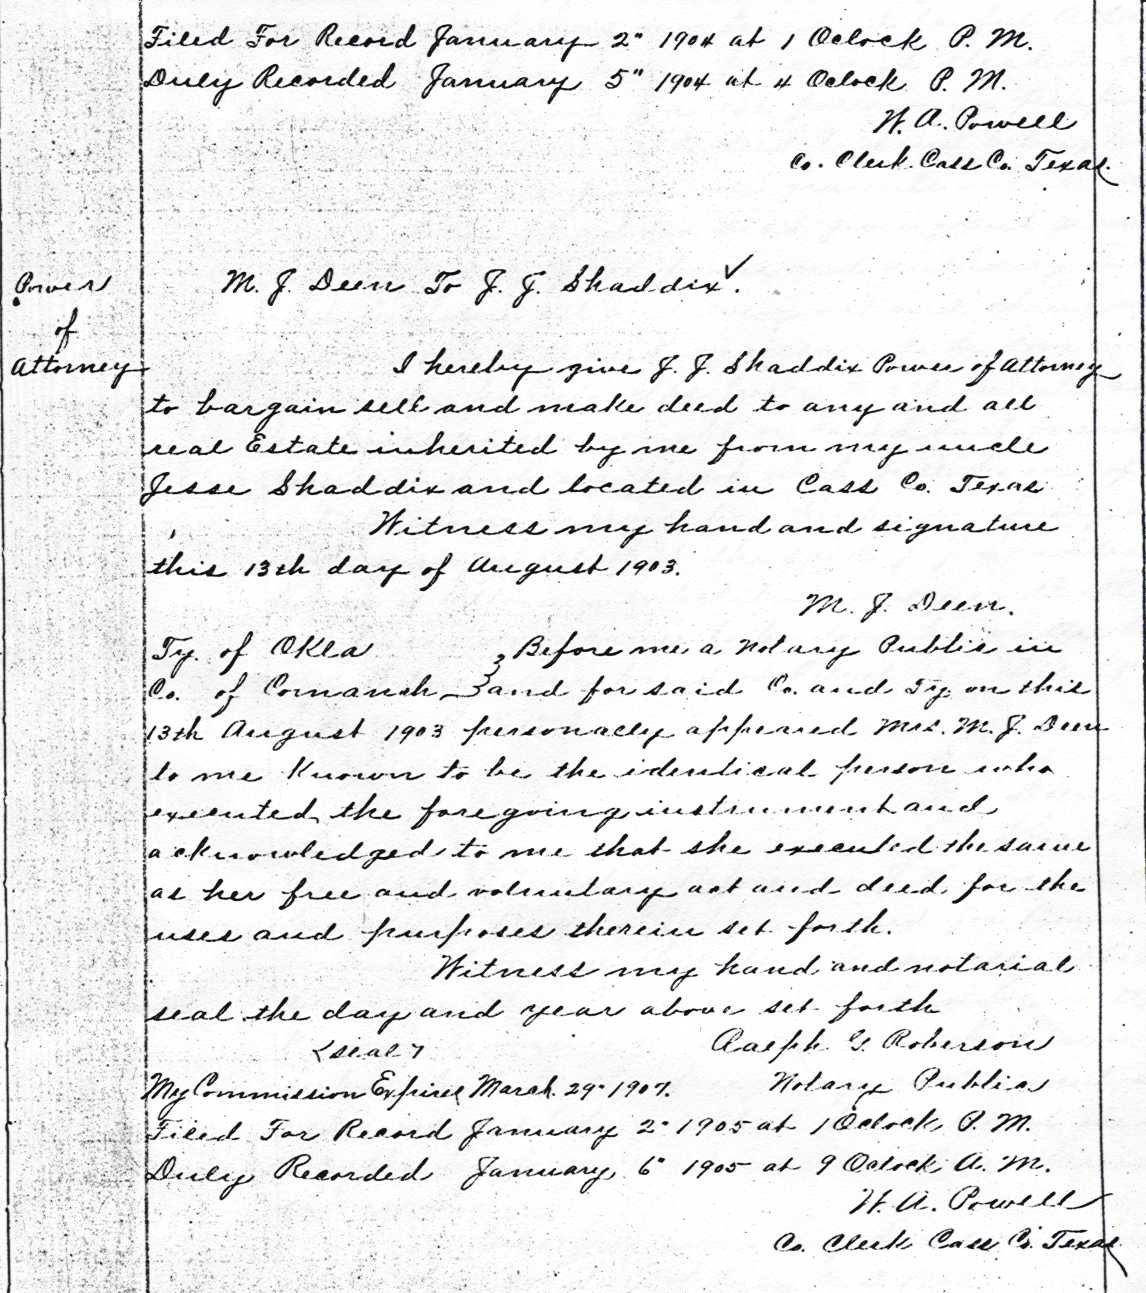 Filed For Record January 2" 1904 at 1 Oclock P. M.
Duly Recorded January 5" 1904 at 4 Oclock P. M.
W. A. Powell
Co. Clerk Cass Co. Texas
Power
of
Attorney
M. J. Deen To J. J. Shaddix ✓.
I hereby give J. J. Shaddix Power of Attorney
to bargain sell and make deed to any and all
real Estate inherited by me from my uncle
Jesse Shaddix and located in Cass Co. Texas
Witness my hand and signature
this 13th day of August 1903.
M. J. Deen.
Ty. of Okla } Before me a Notary Public in
Co. of Comanch } and for said Co. and Ty. on this
13th August 1903 personally appeared Mrs. M. J. Deen
to me Known to be the identical person who
executed the foregoing instrument and
acknowledged to me that she executed the same
as her free and voluntary act and deed for the
uses and purposes therein set forth.
Witness my hand and notarial
seal the day and year above set forth
<seal> Ralph G. Roberson
My Commission Expires March 29" 1907. Notary Public
Filed For Record January 2" 1905 at 1 Oclock P. M.
Duly Recorded January 6" 1905 at 9 Oclock A. M.
W. A. Powell
Co. Clerk Cass Co. Texas